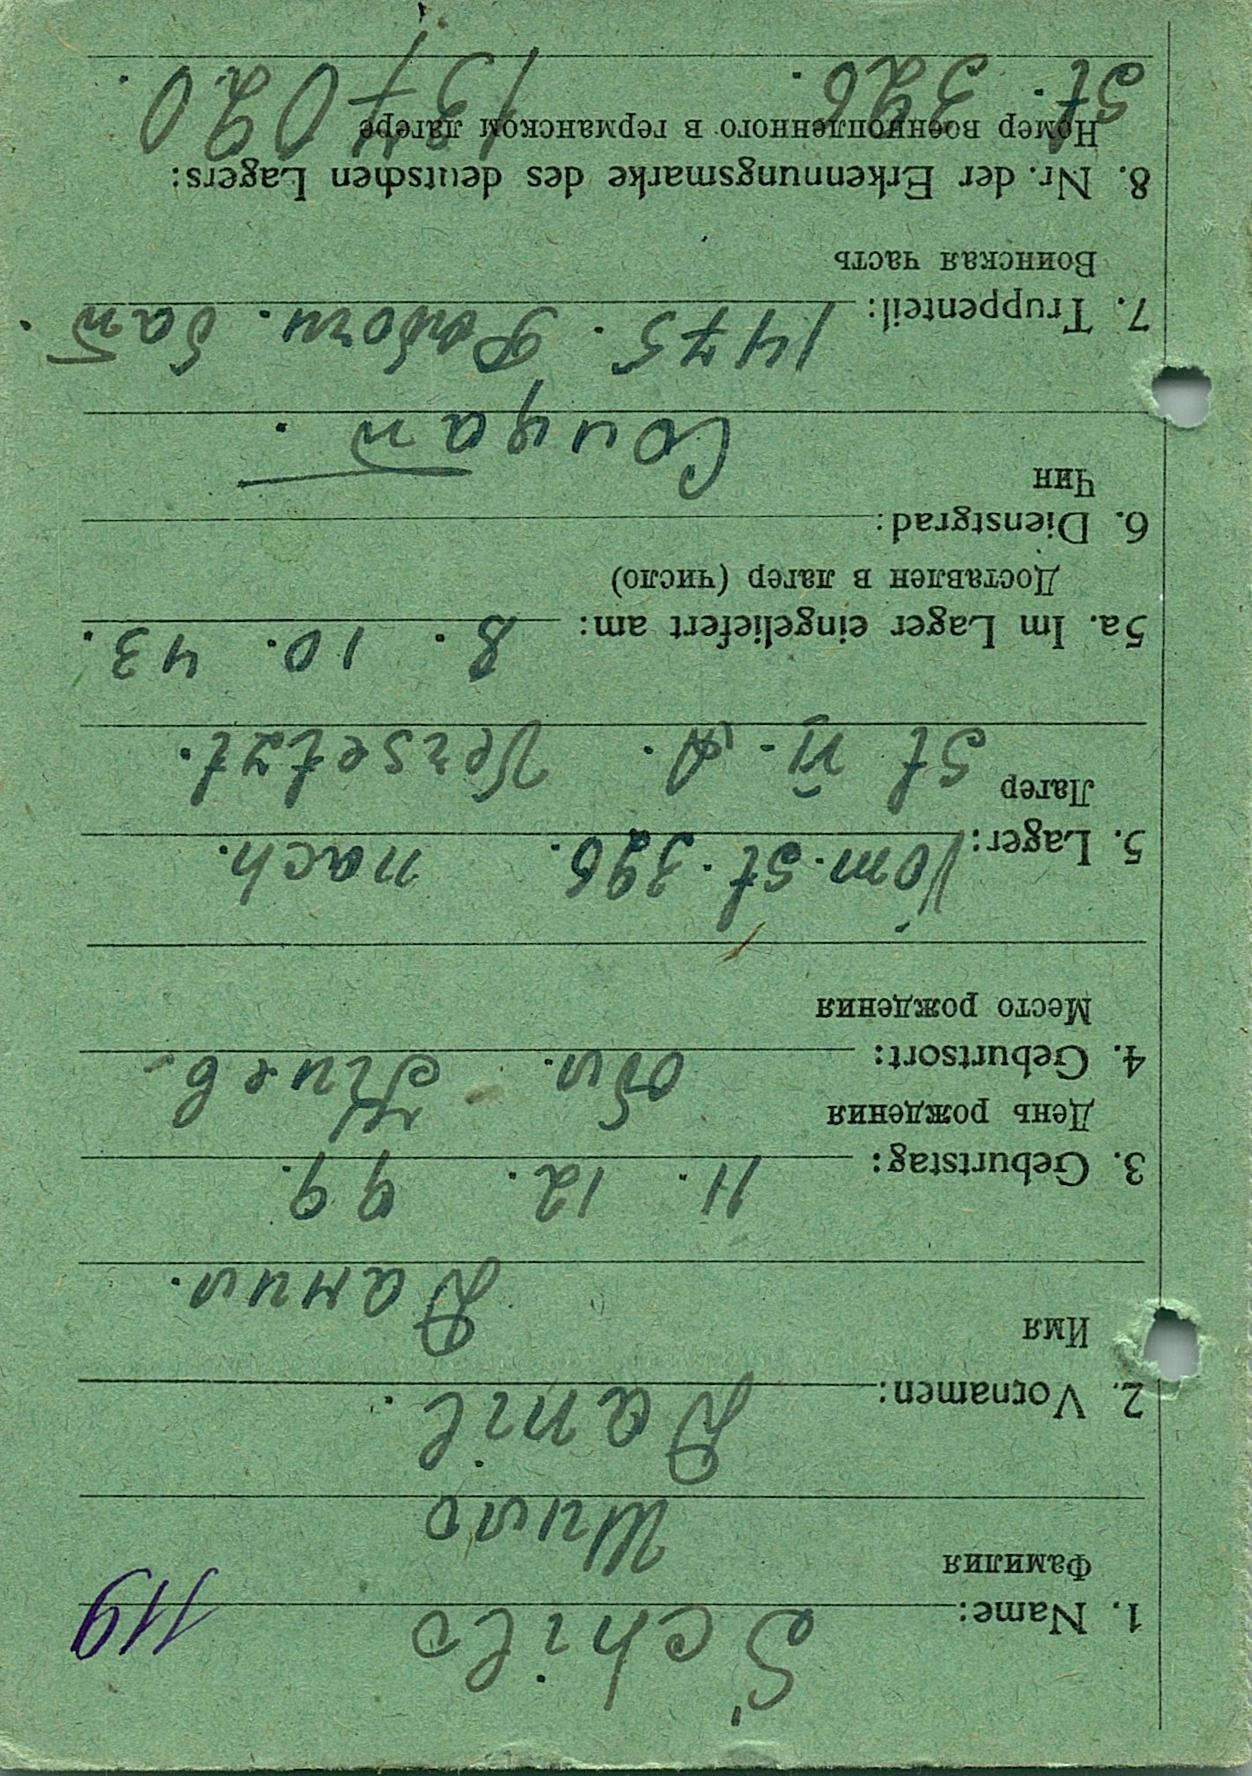 119
1. Name: Schilo
Фамилия Шило
2. Vornamen: Danil.
Имя Данил.
3. Geburtstag: 11. 12. 99.
День рождения
4. Geburtsort: обл. Киев.
Место рождения
5. Lager: Vom. St. 326. nach.
Лагер St VI. A. Versetzt.
5a. Im Lager eingeliefert am: 8. 10. 43.
Доставлен в лагер (число)
6. Dienstgrad:
Чин Солдат.
7. Truppenteil: 1475. бат.
Воинская часть
8. Nr. der Erkennungsmarke des deutschen Lagers:
Номер военнопленного в германском лагере
St. 326. 137020.